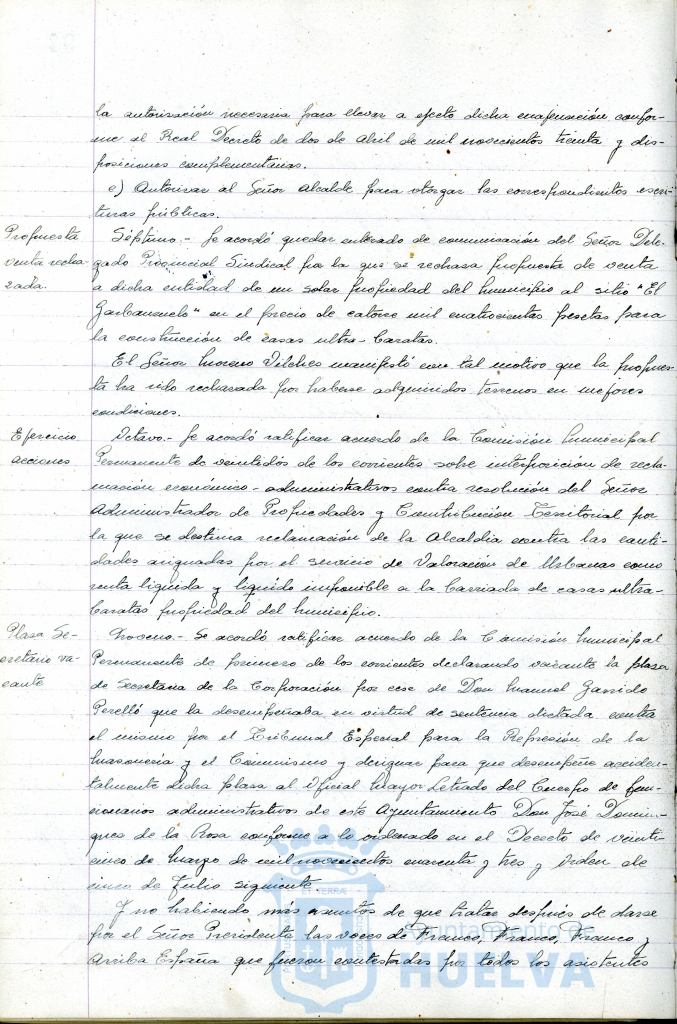 la autorización necesaria para llevar a efecto dicha enajenación confor-
me al Real Decreto de dos de Abril de mil novecientos treinta y dis-
posiciones complementarias.
e) Autorizar al Señor Alcalde para otorgar las correspondientes escri-
turas públicas.
Propuesta
venta recha-
zada.
Séptimo.- Se acordó quedar enterado de comunicación del Señor Dele-
gado Provincial Sindical por la que se rechaza propuesta de venta
a dicha entidad de un solar propiedad del Municipio al sitio "El
Garbanzuelo" en el precio de catorce mil cuatrocientas pesetas para
la construcción de casas ultra-baratas.
El Señor Moreno Vilches manifestó con tal motivo que la propues-
ta ha sido rechazada por haberse adquirido terrenos en mejores
condiciones.
Ejercicio
acciones
Octavo.- Se acordó ratificar acuerdo de la Comisión Municipal
Permanente de veintidós de los corrientes sobre interposición de recla-
mación económico-administrativas contra resolución del Señor
Administrador de Propiedades y Contribución Territorial por
la que se destima reclamación de la Alcaldía contra las canti-
dades asignadas por el servicio de Valoración de Urbanas como
renta líquida y líquido imponible a la barriada de casas ultra-
baratas propiedad del Municipio.
Plaza Se-
cretario va-
cante
Noveno.- Se acordó ratificar acuerdo de la Comisión Municipal
Permanente de primero de los corrientes declarando vacante la plaza
de Secretaria de la Corporación por cese de Don Manuel Garrido
Perelló que la desempeñaba en virtud de sentencia dictada contra
el mismo por el Tribunal Especial para la Represión de la
Masonería y el Comunismo y designar para que desempeñe acciden-
talmente dicha plaza al Oficial Mayor Letrado del Cuerpo de fun-
cionarios administrativos de este Ayuntamiento Don José Domín-
guez de la Rosa conforme a lo ordenado en el Decreto de veinti-
cinco de Marzo de mil novecientos cuarenta y tres y Orden de
cinco de Julio siguiente
Y no habiendo más asuntos de que tratar después de darse
por el Señor Presidente las voces de Franco, Franco, Franco y
Arriba España que fueron contestadas por todos los asistentes
Ayuntamiento de
HUELVA